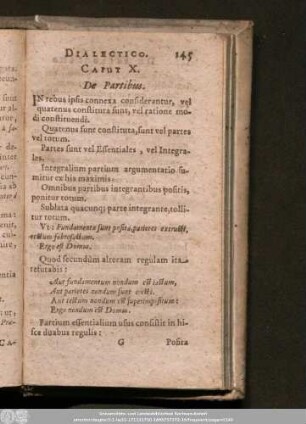 DIALECTICO. 145
CAPUT X.
De Partibus.
IN rebus ipsis connexa considerantur, vel
quatenus constituta sunt, vel ratione mo-
di constituendi.
Quatenus sunt constituta, sunt vel partes
vel totum.
Partes sunt vel Essentiales, vel Integra-
les.
Integralium partium argumentatio su-
mitur ex his maximis:
Omnibus partibus integrantibus positis,
ponitur totum.
Sublata quacunq; parte integrante, tolli-
tur totum.
Ut: Fundamenta sunt posita, parietes extructi,
tectum
Ergo est Domus.
Quod secundum alteram regulam ita
refutabis:
Aut fundamentum nondum est jactum,
Aut parietes nondum sunt erecti.
Aut tectum nondum est superimpositum:
Ergo nondum est Domus.
Partium essentialium usus consistit in hi-
sce duabus regulis:
G Posita